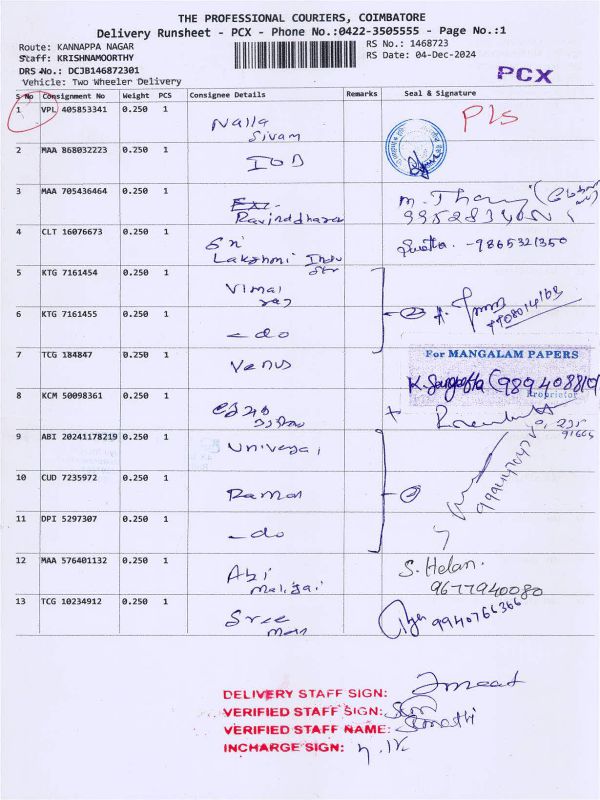 THE PROFESSIONAL COURIERS, COIMBATORE
Delivery Runsheet - PCX - Phone No.:0422-3505555 - Page No.:1
Route: KANNAPPA NAGAR
RS No.: 1468723
Staff: KRISHNAMOORTHY
RS Date: 04-Dec-2024
DRS No.: DCJB146872301
Vehicle: Two Wheeler Delivery
PCX
S No Consignment No Weight PCS Consignee Details Remarks Seal & Signature
1 VPL 405853341 0.250 1 Nalla
Sivam
Pls
2 MAA 868032223 0.250 1 IOB
3 MAA 705436464 0.250 1
Ravinddharan
4 CLT 16076673 0.250 1 Sri
Lakshmi Indu
Str
9865321350
5 KTG 7161454 0.250 1 Vimal
raj
6 KTG 7161455 0.250 1 - do
7 TCG 184847 0.250 1 Venus
For MANGALAM PAPERS
Proprietor
8 KCM 50098361 0.250 1
9 ABI 20241178219 0.250 1
10 CUD 7235972 0.250 1 Raman
11 DPI 5297307 0.250 1 - do
12 MAA 576401132 0.250 1 Abi
Maligai
S. Helan.
9677940080
13 TCG 10234912 0.250 1 Sree
Man
9940766366
DELIVERY STAFF SIGN:
VERIFIED STAFF SIGN:
VERIFIED STAFF NAME: Sumathi
INCHARGE SIGN: